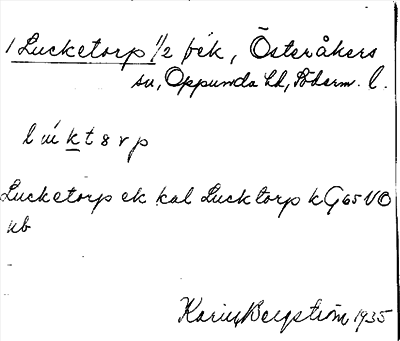 1 Lucketorp 1/2 fék, Österåkers
sn, Oppunda hd, Söderm. l.
l u k t ə r p
Lucketorp ek kal Lucktorp k G 65 NO
ub
Karin Bergström 1935